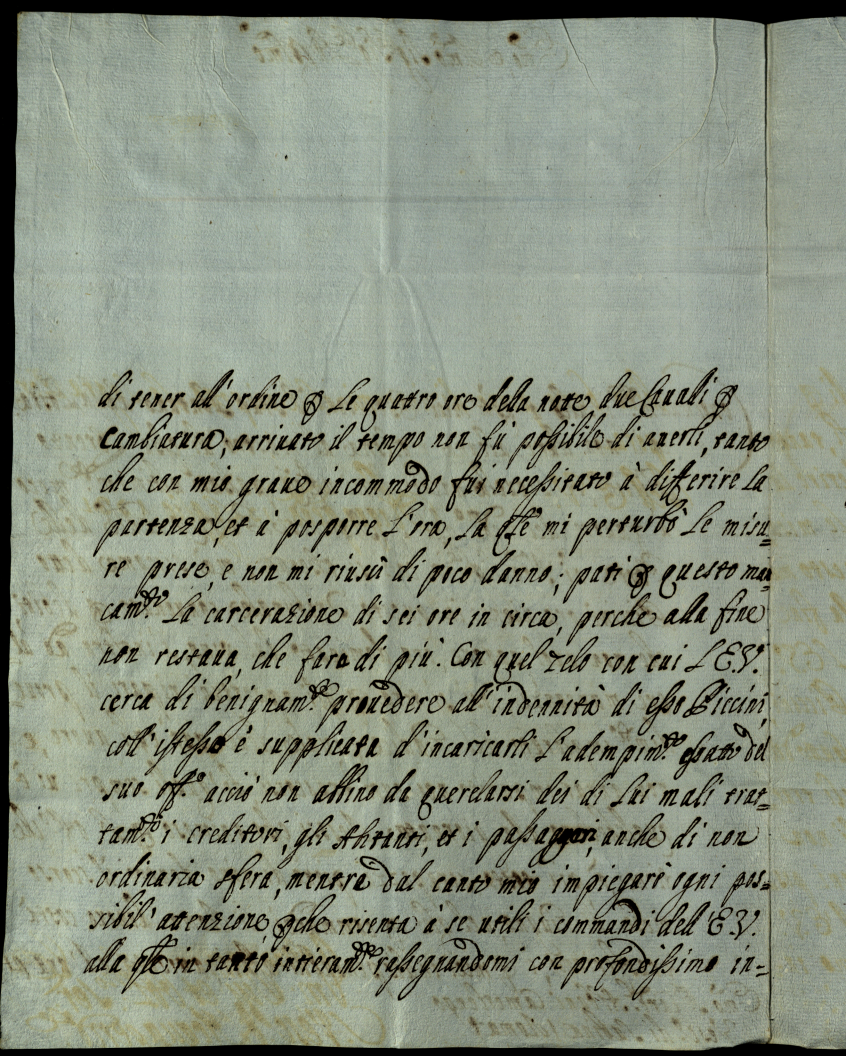 di tener all'ordine p le quattro ore della notte due Cavalli p
Cambiatura; arrivato il tempo non fù possibile di averli, tanto
che con mio grave incommodo fui necessitato à differire la
partenza, et à posporre l'ora, la qle mi perturbò le misu=
re prese, e non mi riuscì di poco danno; patì p questo man=
camto la carcerazione di sei ore in circa, perche alla fine
non restava, che fare di più. Con quel zelo con cui l'E.V.
cerca di benignamte provedere all'indennità di esso Piccini,
coll'istesso è supplicata d'incaricarli l'adempimto esatto del
suo offo acciò non abbino da querelarsi dei di lui mali trat=
tamti i creditori, gli, et i passaggieri, anche di non
ordinaria sfera, mentre dal canto mio impiegarò ogni pos=
sibil'attenzione pche risenta à se utili i commandi dell'E.V.
alla qle in tanto intieramte rassegnandomi con profondissimo in=